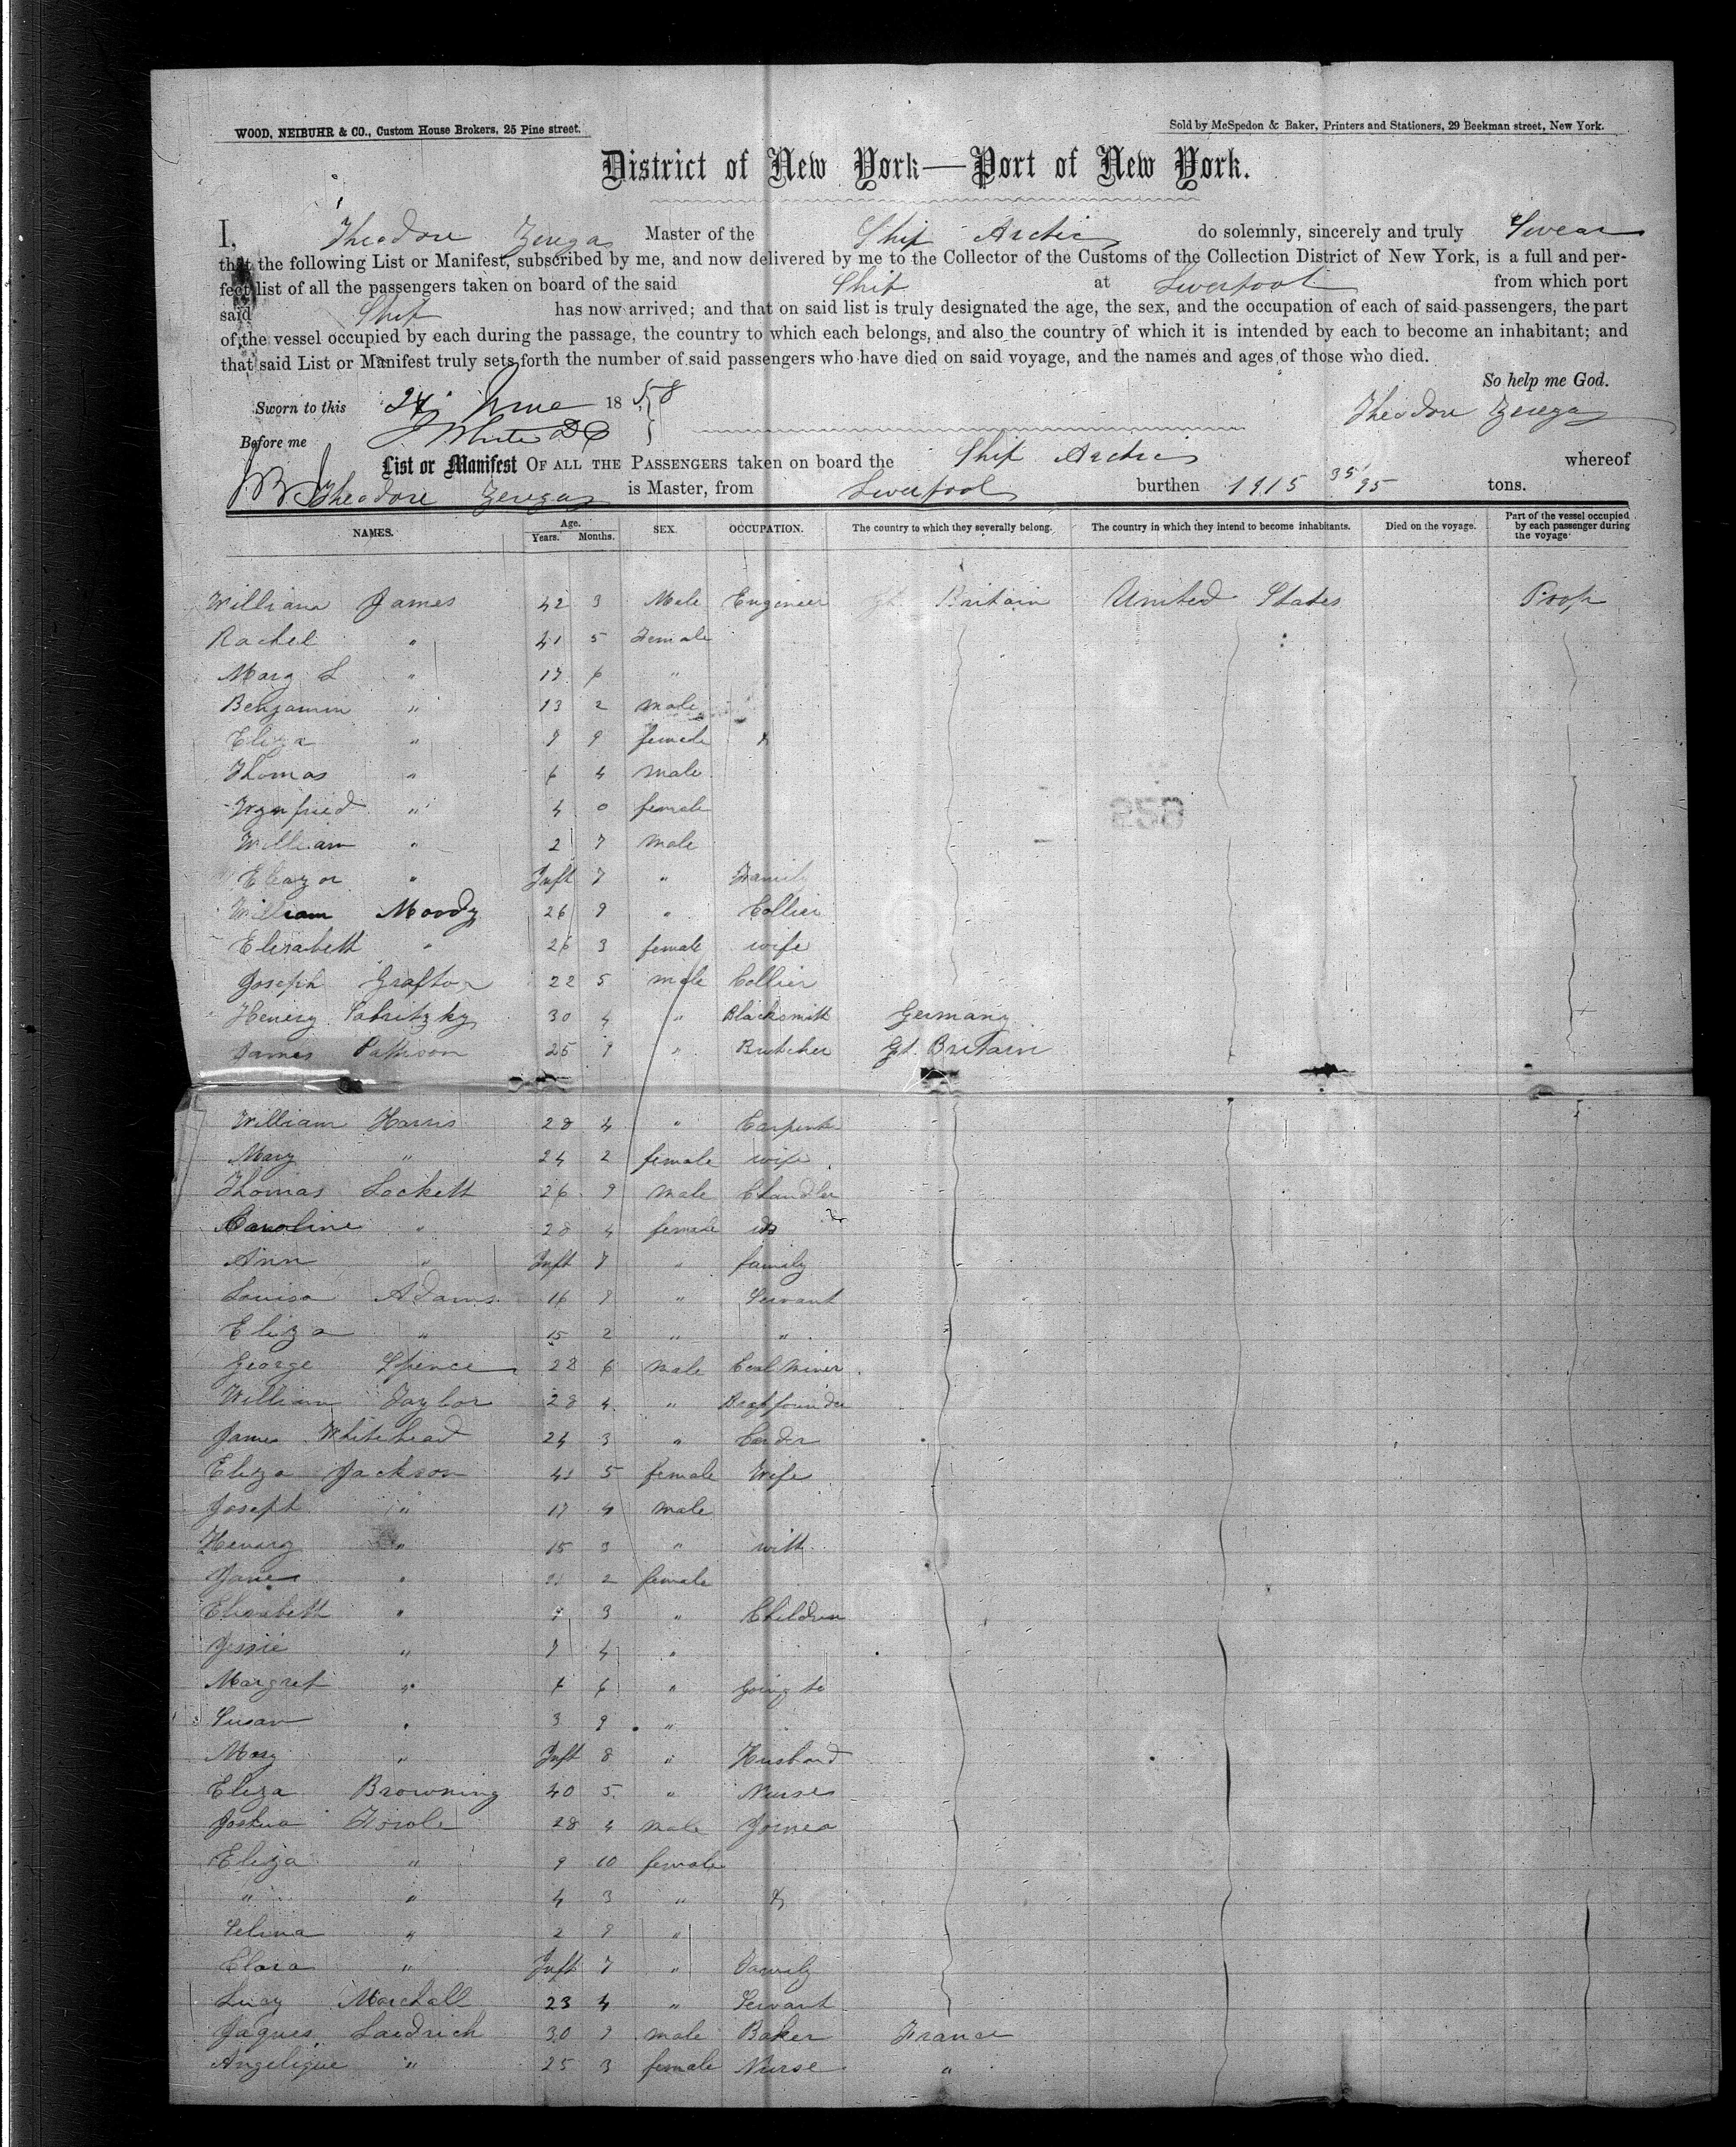 WOOD, NEIBUHR & CO., Custom House Brokers, 25 Pine street.
Sold by McSpedon & Baker, Printers and Stationers, 29 Beekman street, New York.
District of New York—Port of New York.
I, Theodore Zerega Master of the Ship Arctic do solemnly, sincerely and truly Swear
that the following List or Manifest, subscribed by me, and now delivered by me to the Collector of the Customs of the Collection District of New York, is a full and per-
fect list of all the passengers taken on board of the said Ship at Liverpool from which port
said Ship has now arrived; and that on said list is truly designated the age, the sex, and the occupation of each of said passengers, the part
of the vessel occupied by each during the passage, the country to which each belongs, and also the country of which it is intended by each to become an inhabitant; and
that said List or Manifest truly sets forth the number of said passengers who have died on said voyage, and the names and ages of those who died.
So help me God.
Sworn to this 24 June 1858
Theodore Zerega
Before me J. White DC
List or Manifest OF ALL THE PASSENGERS taken on board the Ship Arctic whereof
Theodore Zerega is Master, from Liverpool burthen 1915 35/95 tons.
NAMES. Age. Years. Months. SEX. OCCUPATION. The country to which they severally belong. The country in which they intend to become inhabitants. Died on the voyage. Part of the vessel occupied by each passenger during the voyage
William James 42 3 Male Engineer Gt. Britain United States
Rachel " 41 5 Female
Mary L " 17 6 "
Benjamin " 13 2 male
Eliza " 9 9 female &
Thomas " 6 4 male
Wynfried " 4 0 female
William " 2 7 male
Eleazor " Inft 7 " Family
William Moody 26 9 " Collier
Elizabeth " 26 3 female wife
Joseph Grafton 22 5 male Collier
Henery 30 4 " Blacksmith Germany
James Pattison 25 9 " Butcher Gt. Britain
William Harris 28 4 " Carpentr
Mary " 24 2 female wife
Thomas Lockett 26 9 male Chandler
Caroline " 28 4 female
Ann " Inft 7 " family
Louisa Adams 16 9 " Servant
Eliza " 15 2 " "
George Spence 22 6 male Coal Miner
William Taylor 28 4 "
James Whitehead 24 3 " Carder
Eliza Jackson 41 5 female Wife
Joseph " 17 4 male
Henary " 15 3 " with
Jane " 2 female
Elizabeth " 3 " Children
Jessie " 7 4 "
Margret " 6 6 " Going to
Susan " 3 9 "
Mary " Inft 8 " Husband
Eliza Browning 40 5 " Nurse
Joshua 28 4 male Joiner
Eliza " 9 10 female
" " 4 3 " &
Selina " 2 9 "
Clara " Inft 7 " Family
Lucy Marchall 23 4 " Servant
Jaques Laedrich 30 9 male Baker France
Angelique " 25 3 female Nurse "